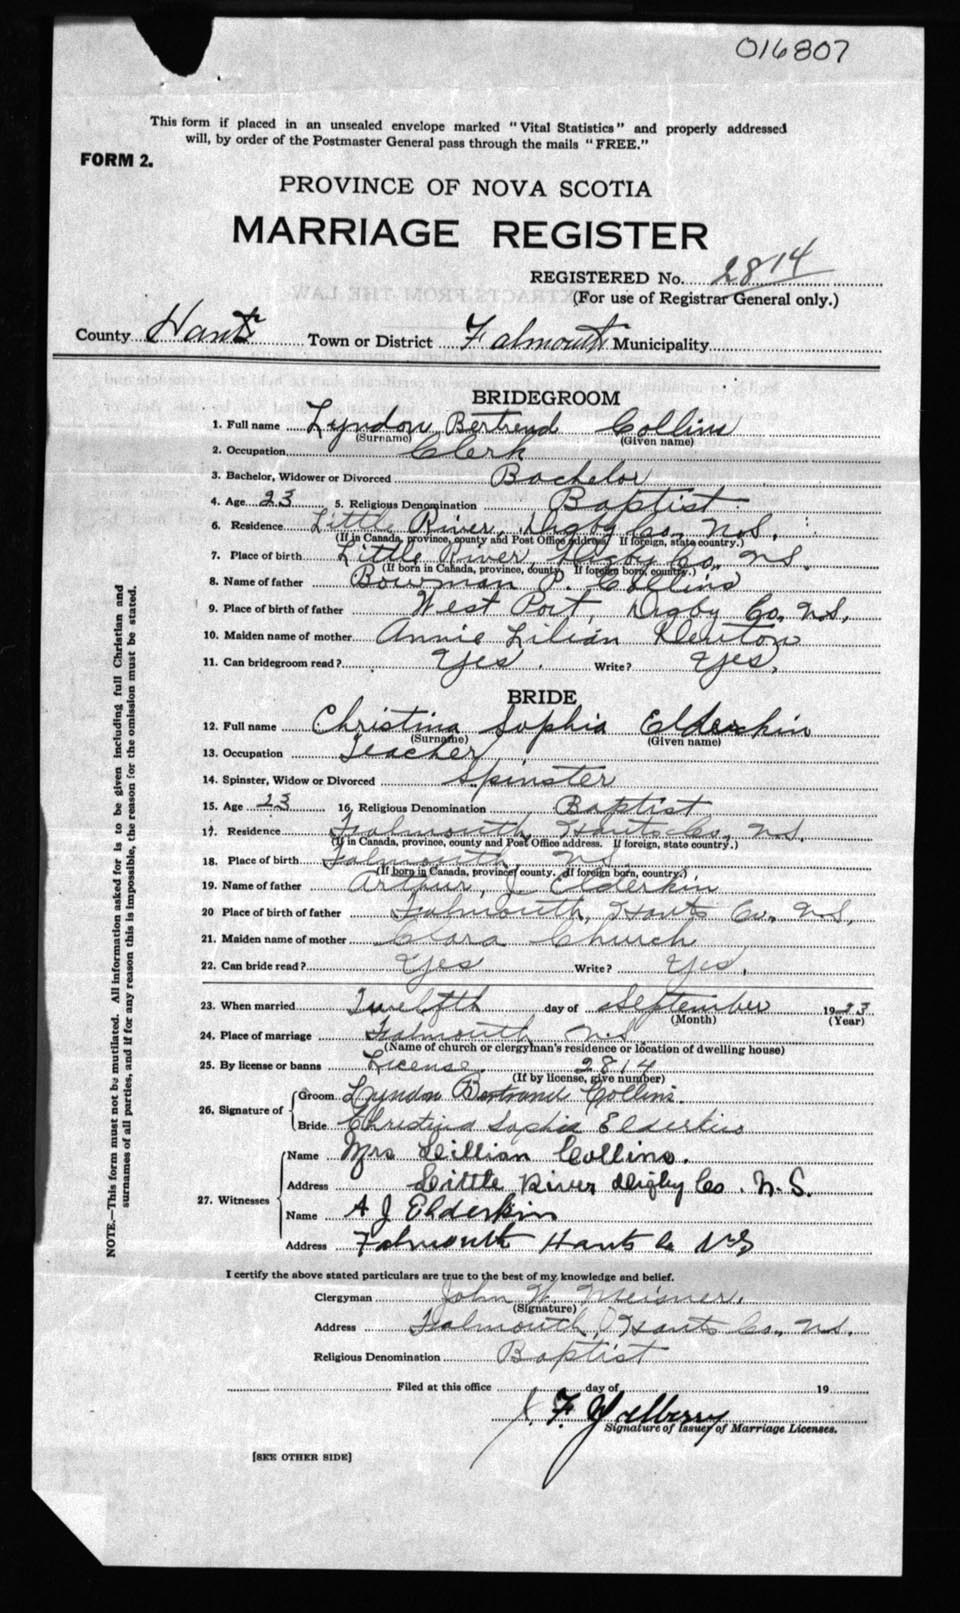 016807
This form if placed in an unsealed envelope marked "Vital Statistics" and properly addressed
will, by order of the Postmaster General pass through the mails "FREE."
FORM 2.
PROVINCE OF NOVA SCOTIA
MARRIAGE REGISTER
REGISTERED No. 2814
(For use of Registrar General only.)
County Hants Town or District Falmouth Municipality
BRIDEGROOM
1. Full name Lyndon Bertrend Collins
(Surname) (Given name)
2. Occupation Clerk
3. Bachelor, Widower or Divorced Bachelor
4. Age 23 5. Religious Denomination Baptist
6. Residence Little River, Digby Co, N.S.
(If in Canada, province, county and Post Office address. If foreign, state country.)
7. Place of birth Little River, Digby Co, N.S.
(If born in Canada, province, county. If foreign born, country.)
8. Name of father Bowman P. Collins
9. Place of birth of father West Port, Digby Co, N.S.
10. Maiden name of mother Annie Lilian Denton
11. Can bridegroom read? Yes. Write? Yes.
BRIDE
12. Full name Christina Sophia Elderkin
(Surname) (Given name)
13. Occupation Teacher
14. Spinster, Widow or Divorced Spinster
15. Age 23 16. Religious Denomination Baptist
17. Residence Falmouth, Hants Co, N.S.
(If in Canada, province, county and Post Office address. If foreign, state country.)
18. Place of birth Falmouth, N.S.
(If born in Canada, province, county. If foreign born, country.)
19. Name of father Arthur, J. Elderkin
20 Place of birth of father Falmouth, Hants Co, N.S.
21. Maiden name of mother Clara Church
22. Can bride read? Yes Write? Yes.
23. When married Twelfth day of September 1923
(Month) (Year)
24. Place of marriage Falmouth N.S
(Name of church or clergyman's residence or location of dwelling house)
25. By license or banns License. 2814
(If by license, give number)
26. Signature of
Groom Lyndon Bertrand Collins.
Bride Christina Sophia Elderkin
27. Witnesses
Name Mrs Lillian Collins.
Address Little River Digby Co. N.S.
Name A J Elderkin
Address Falmouth Hants Co N S
I certify the above stated particulars are true to the best of my knowledge and belief.
Clergyman John W. Meisner.
(Signature)
Address Falmouth, Hants Co, N.S.
Religious Denomination Baptist
Filed at this office day of 19
F.
Signature of Issuer of Marriage Licenses.
[SEE OTHER SIDE]
NOTE.—This form must not be mutilated. All information asked for is to be given including full Christian and
surnames of all parties, and if for any reason this is impossible, the reason for the omission must be stated.